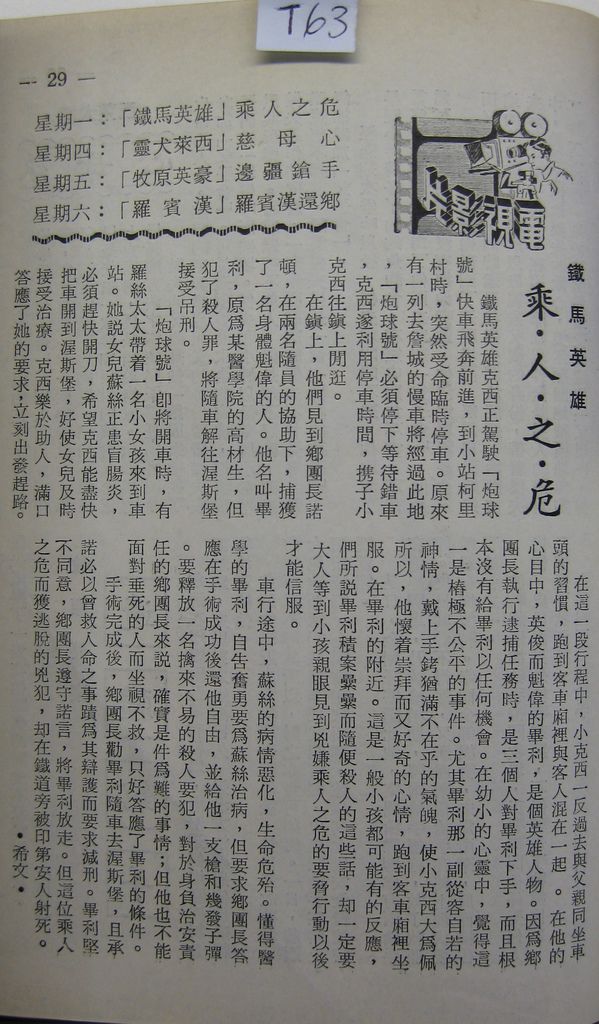 T63
— 29 —
星期一：「鐵馬英雄」乘人之危
星期四：「靈犬萊西」慈母心
星期五：「牧原英豪」邊疆鎗手
星期六：「羅賓漢」羅賓漢還鄉
電視影片
鐵馬英雄
乘・人・之・危
鐵馬英雄克西正駕駛「炮球
號」快車飛奔前進，到小站柯里
村時，突然受命臨時停車。原來
有一列去詹城的慢車將經過此地
，「炮球號」必須停下等待錯車
，克西遂利用停車時間，携子小
克西往鎮上閒逛。
在鎮上，他們見到鄉團長諾
頓，在兩名隨員的協助下，捕獲
了一名身體魁偉的人。他名叫畢
利，原爲某醫學院的高材生，但
犯了殺人罪，將隨車解往渥斯堡
接受吊刑。
「炮球號」卽將開車時，有
羅絲太太帶着一名小女孩來到車
站。她説女兒蘇絲正患盲腸炎，
必須趕快開刀，希望克西能盡快
把車開到渥斯堡，好使女兒及時
接受治療。克西樂於助人，滿口
答應了她的要求，立刻出發趕路。
在這一段行程中，小克西一反過去與父親同坐車
頭的習慣，跑到客車廂裡與客人混在一起。在他的
心目中，英俊而魁偉的畢利，是個英雄人物。因爲鄉
團長執行逮捕任務時，是三個人對畢利下手，而且根
本沒有給畢利以任何機會。在幼小的心靈中，覺得這
一是樁極不公平的事件。尤其畢利那一副從容自若的
神情，戴上手銬猶滿不在乎的氣魄，使小克西大爲佩
所以，他懷着崇拜而又好奇的心情，跑到客車廂裡坐
服。在畢利的附近。這是一般小孩都可能有的反應，
們所説畢利積案纍纍而隨便殺人的這些話，却一定要
大人等到小孩親眼見到兇嫌乘人之危的要脅行動以後
才能信服。
車行途中，蘇絲的病情惡化，生命危殆。懂得醫
學的畢利，自吿奮勇要爲蘇絲治病，但要求鄉團長答
應在手術成功後還他自由，並給他一支槍和幾發子彈
。要釋放一名擒來不易的殺人要犯，對於身負治安責
任的鄉團長來説，確實是件爲難的事情；但他也不能
面對垂死的人而坐視不救，只好答應了畢利的條件。
手術完成後，鄉團長勸畢利隨車去渥斯堡，且承
諾必以曾救人命之事蹟爲其辯護而要求減刑。畢利堅
不同意，鄉團長遵守諾言，將畢利放走。但這位乘人
之危而獲逃脫的兇犯，却在鐵道旁被印第安人射死。
・希文・